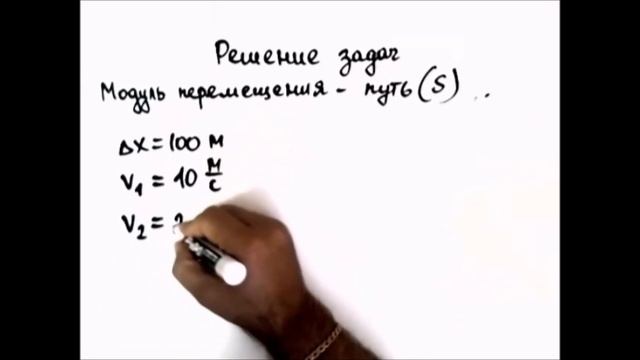 Решение задач
Модуль перемещения - путь (S) ..
Δx = 100 м
v₁ = 10 м/с
v₂ =